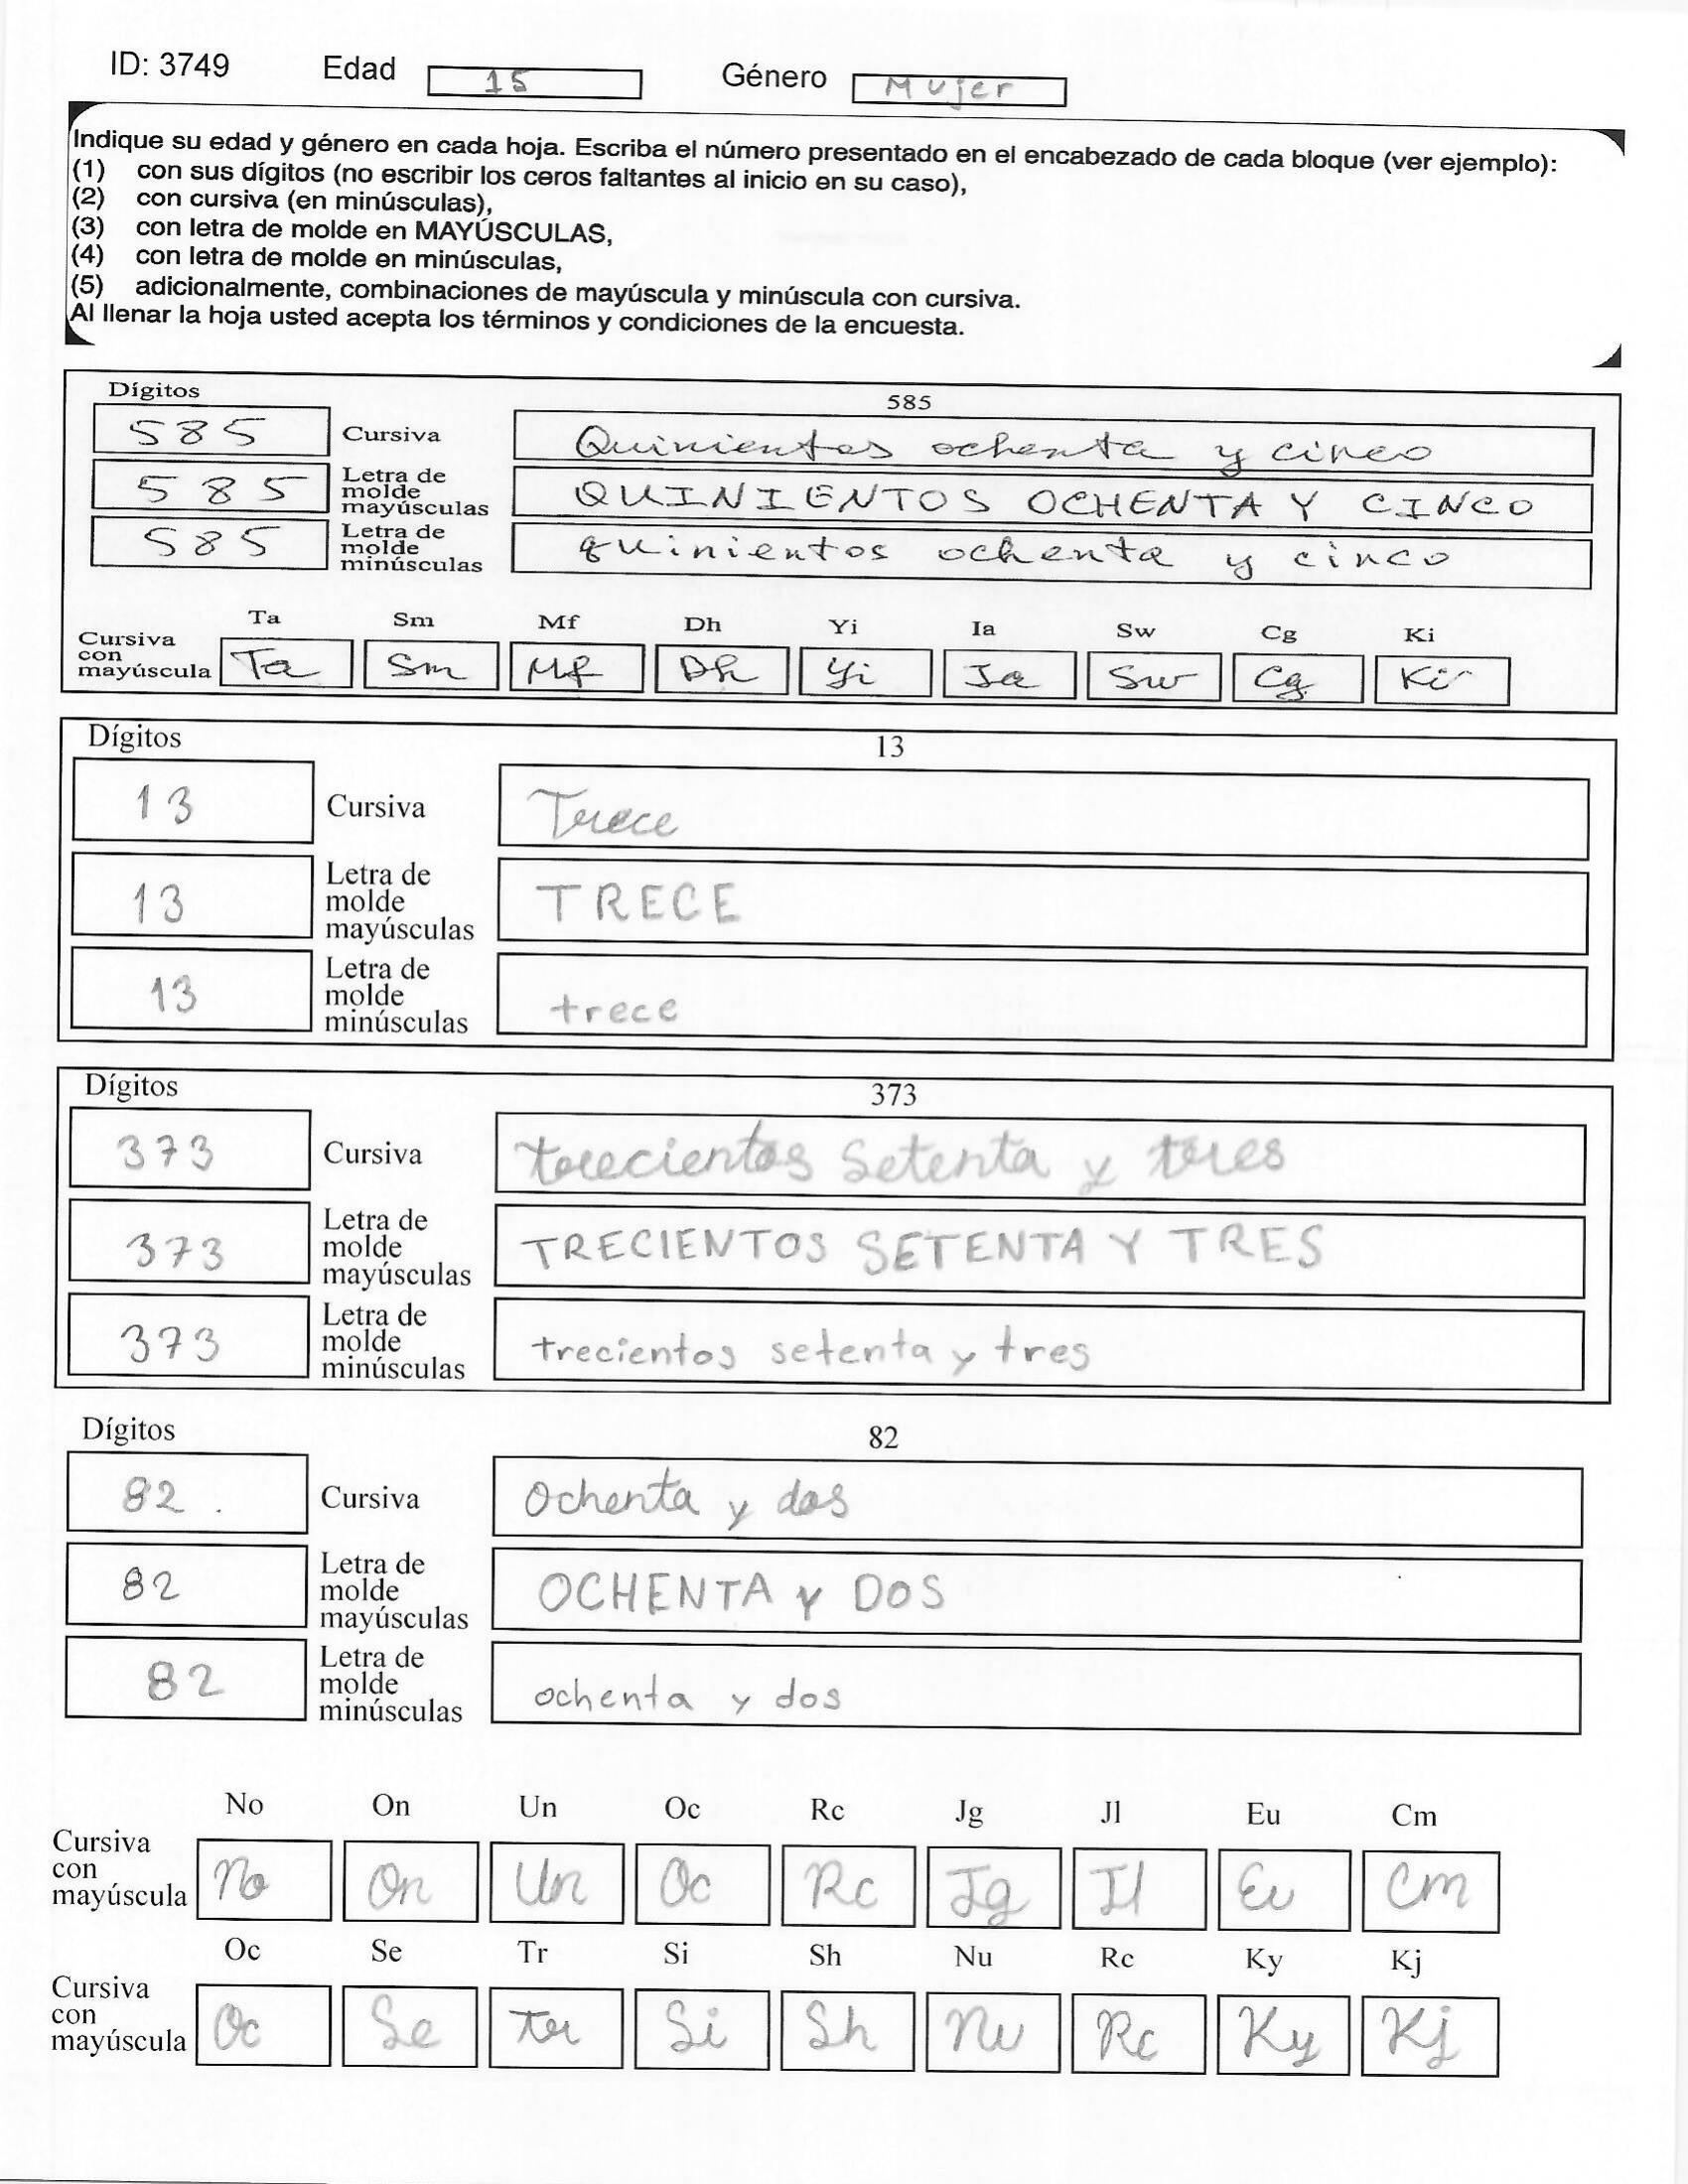 ID: 3749 Edad 15 Género Mujer
Indique su edad y género en cada hoja. Escriba el número presentado en el encabezado de cada bloque (ver ejemplo):
(1) con sus dígitos (no escribir los ceros faltantes al inicio en su caso),
(2) con cursiva (en minúsculas),
(3) con letra de molde en MAYÚSCULAS,
(4) con letra de molde en minúsculas,
(5) adicionalmente, combinaciones de mayúscula y minúscula con cursiva.
Al llenar la hoja usted acepta los términos y condiciones de la encuesta.
Dígitos 585
585 Cursiva Quinientos ochenta y cinco
585 Letra de molde mayúsculas QUINIENTOS OCHENTA Y CINCO
585 Letra de molde minúsculas quinientos ochenta y cinco
Ta Sm Mf Dh Yi Ia Sw Cg Ki
Cursiva con mayúscula Ta Sm Mf Dh Yi Ia Sw Cg Ki
Dígitos 13
13 Cursiva Trece
13 Letra de molde mayúsculas TRECE
13 Letra de molde minúsculas trece
Dígitos 373
373 Cursiva trecientos setenta y tres
373 Letra de molde mayúsculas TRECIENTOS SETENTA Y TRES
373 Letra de molde minúsculas trecientos setenta y tres
Dígitos 82
82 . Cursiva Ochenta y dos
82 Letra de molde mayúsculas OCHENTA y DOS
82 Letra de molde minúsculas ochenta y dos
No On Un Oc Rc Jg Jl Eu Cm
Cursiva con mayúscula No On Un Oc Rc Jg Jl Eu Cm
Oc Se Tr Si Sh Nu Rc Ky Kj
Cursiva con mayúscula Oc Se tr Si Sh Nu Rc Ky Kj